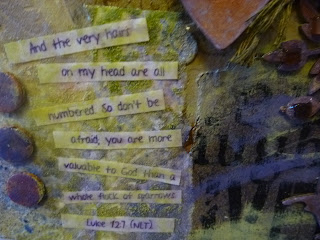 And the very hairs
on my head are all
numbered. So don't be
afraid, you are more
valuable to God than a
whole flock of sparrows
Luke 12:7 (NET)